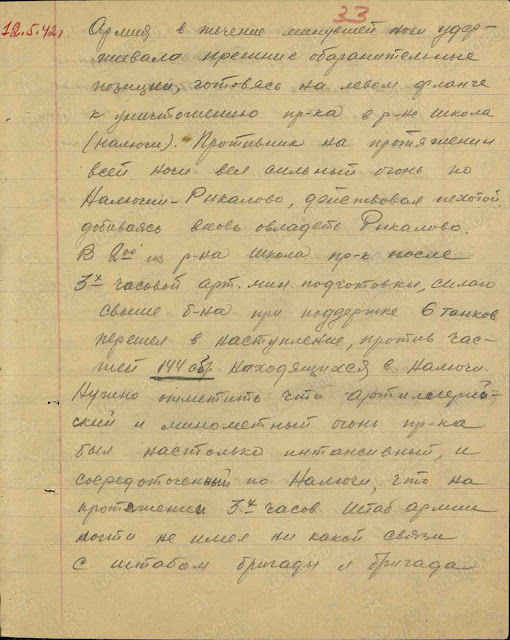 33
12.5.42г. Армия в течение минувшей ночи удер-
живала прежние оборонительные
позиции, готовясь на левом фланге
к уничтожению пр-ка в р-не школа
(Налючи). Противник на протяжении
всей ночи вел сильный огонь по
Налючи-Рыкалово, действовал пехотой
добиваясь вновь овладеть Рыкалово.
В 2⁰⁰ из р-на школа пр-к после
3х часовой арт. мин. подготовки, силою
свыше б-на при поддержке 6 танков
перешел в наступление, против час-
тей 144 обр. находящихся в Налючи.
Нужно отметить что артиллерий-
ский и минометный огонь пр-ка
был настолько интенсивный, и
сосредоточенный по Налючи, что на
протяжении 3х часов Штаб армии
почти не имел ни какой связи
с штабом бригады и бригада